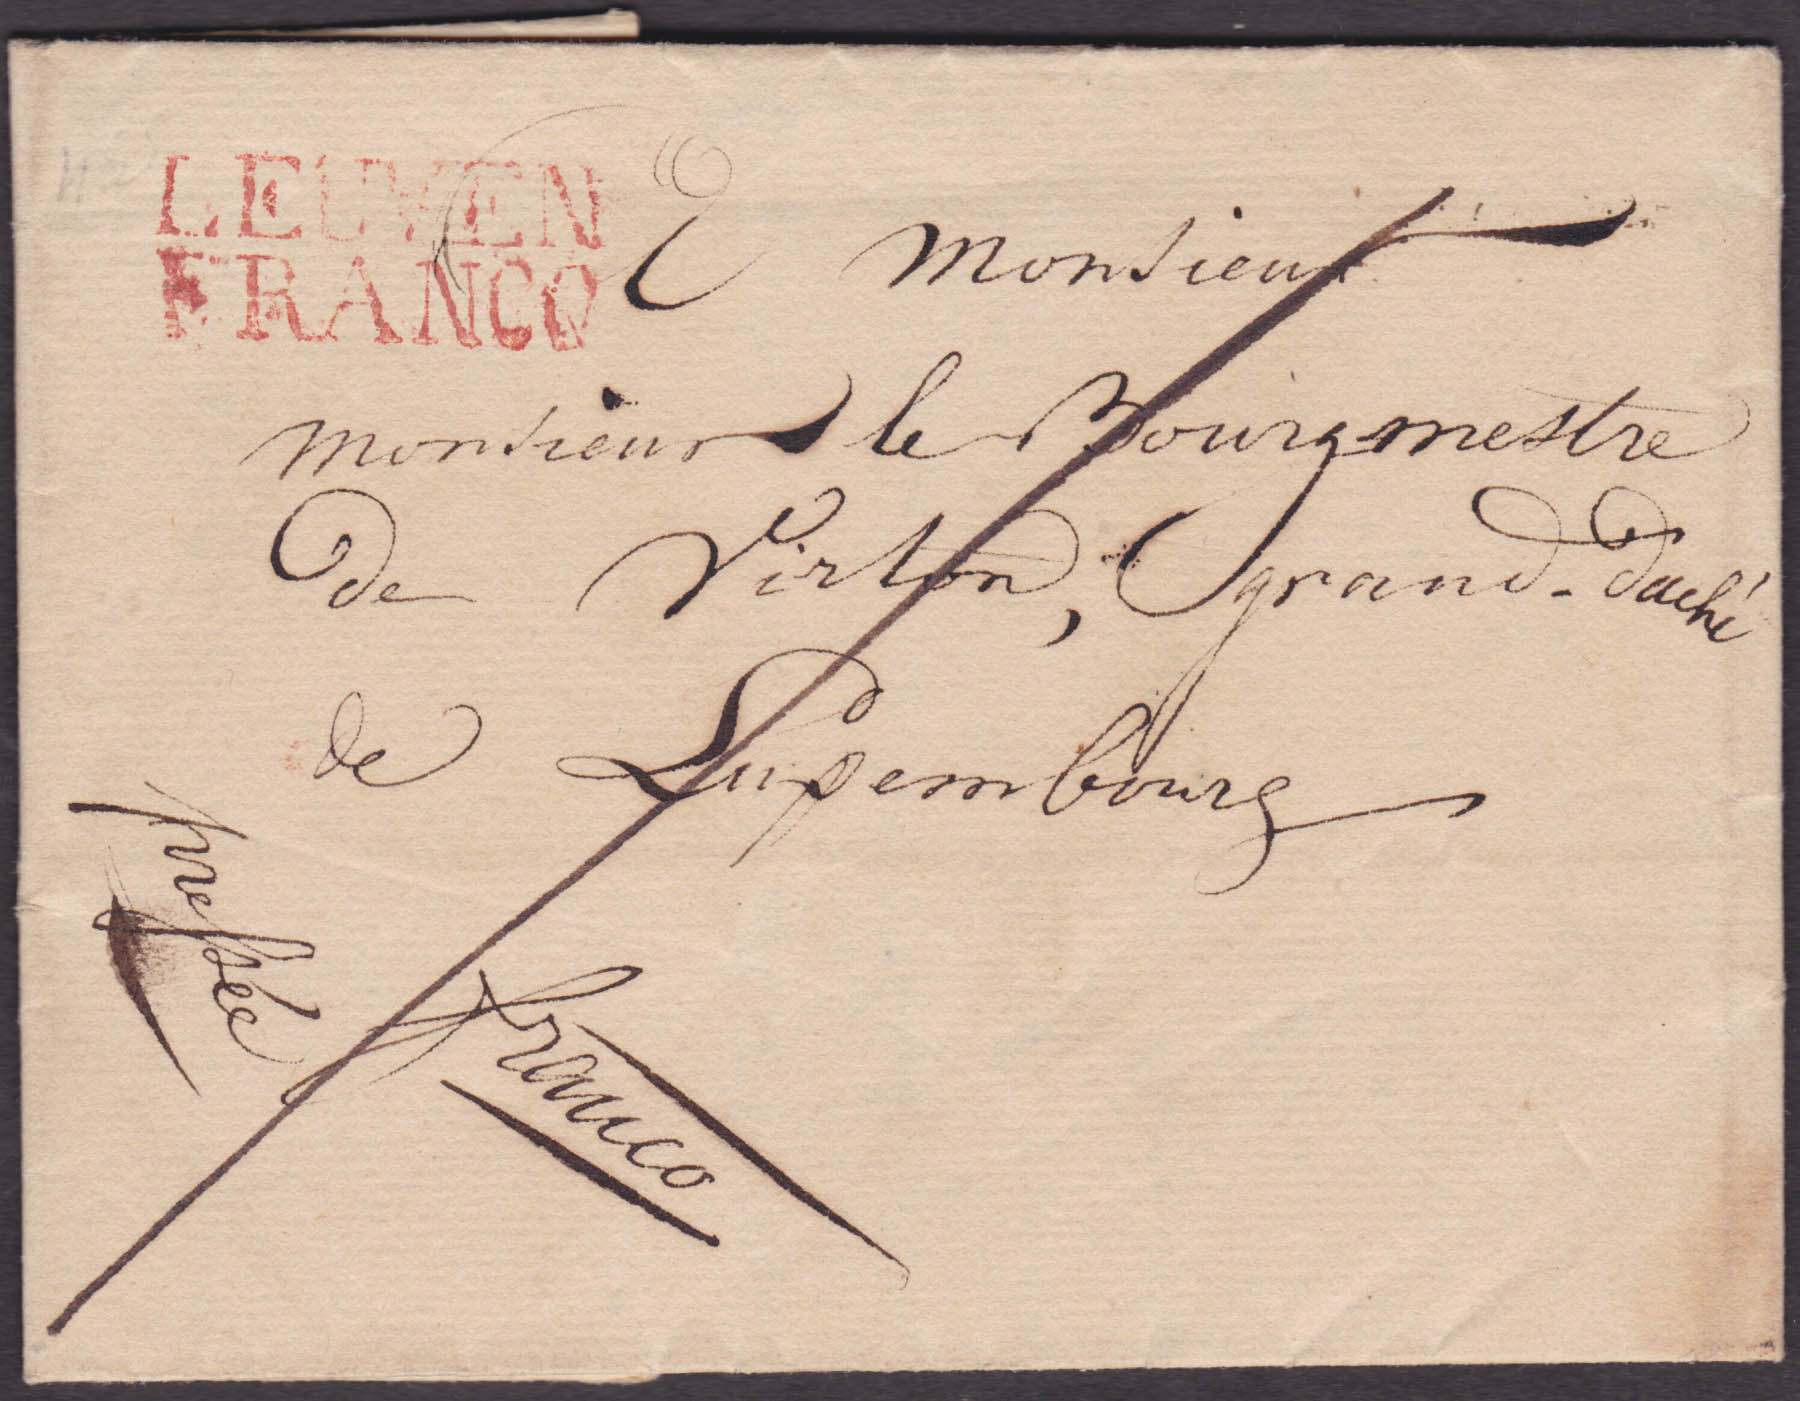 LEUVEN
FRANCO
A Monsieur
Monsieur le Bourgmestre
de Virton, grand-duché
de Luxembourg
pressée
franco